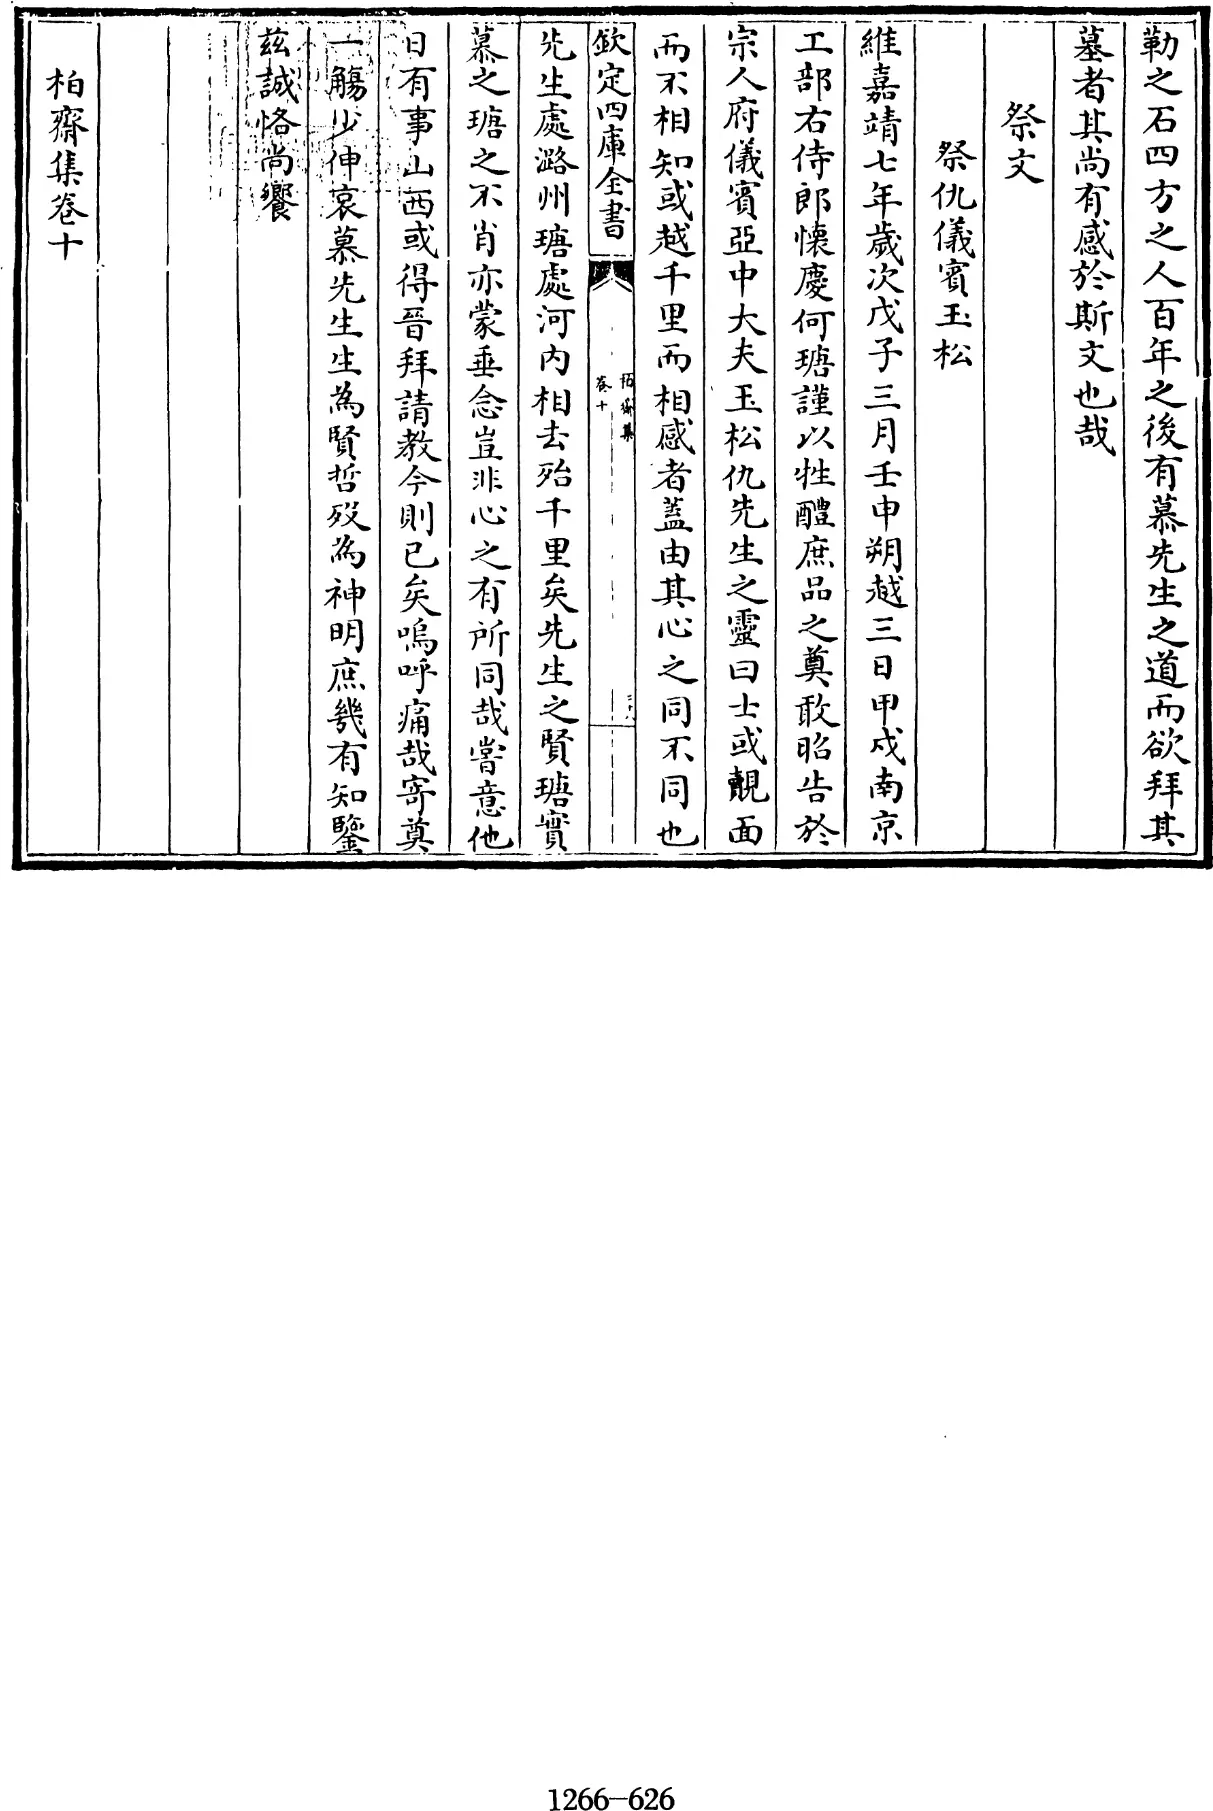 勒之石四方之人百年之後有慕先生之道而欲拜其
墓者其尚有感於斯文也哉
祭文
祭仇儀賓玉松
維嘉靖七年歲次戊子三月壬申朔越三日甲戌南京
工部右侍郎懷慶何瑭謹以牲醴庶品之奠敢昭告於
宗人府儀賓亞中大夫玉松仇先生之靈曰士或覿面
而不相知或越千里而相感者蓋由其心之同不同也
欽定四庫全書
柏齋集
卷十
先生處潞州瑭處河内相去殆千里矣先生之賢瑭實
慕之瑭之不肖亦蒙垂念豈非心之有所同哉嘗意他
日有事山西或得晉拜請教今則已矣嗚呼痛哉寄奠
一觴少伸哀慕先生生為賢哲歿為神明庶幾有知鑒
茲誠恪尚饗
柏齋集卷十
1266-626